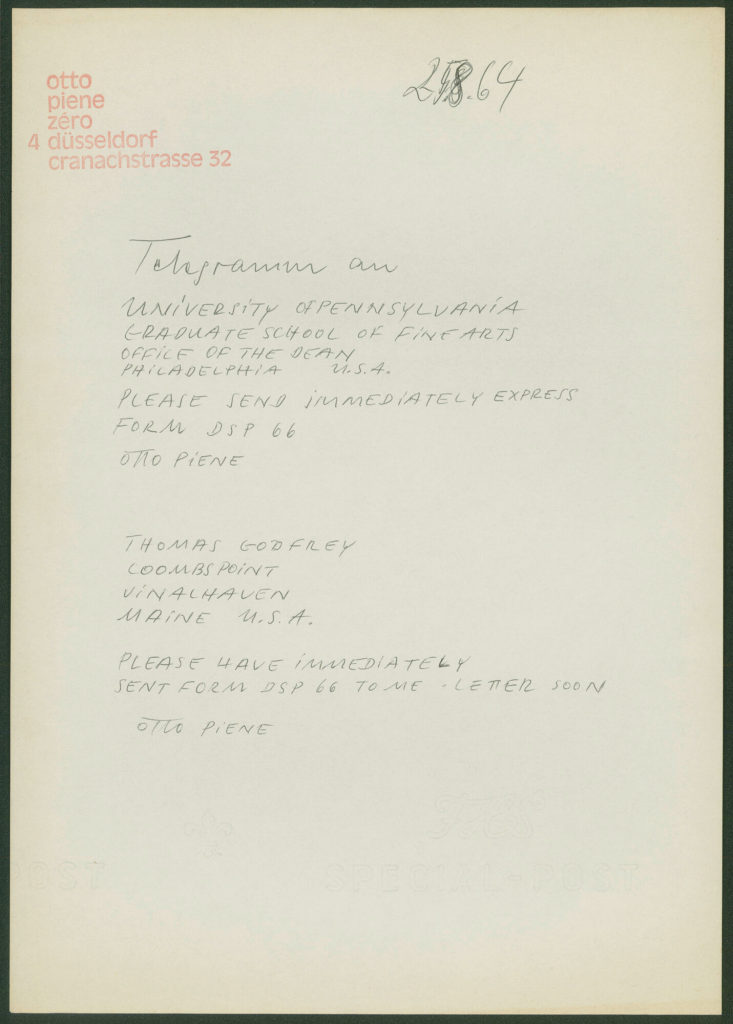 otto
piene
zéro
4 düsseldorf
cranachstrasse 32
Telegramm an
UNIVERSITY OF PENNSYLVANIA
GRADUATE SCHOOL OF FINE ARTS
OFFICE OF THE DEAN
PHILADELPHIA U.S.A.
PLEASE SEND IMMEDIATELY EXPRESS
FORM DSP 66
OTTO PIENE
THOMAS GODFREY
COOMBS POINT
VINALHAVEN
MAINE U.S.A.
PLEASE HAVE IMMEDIATELY
SENT FORM DSP 66 TO ME - LETTER SOON
OTTO PIENE
POST SPECIAL-POST